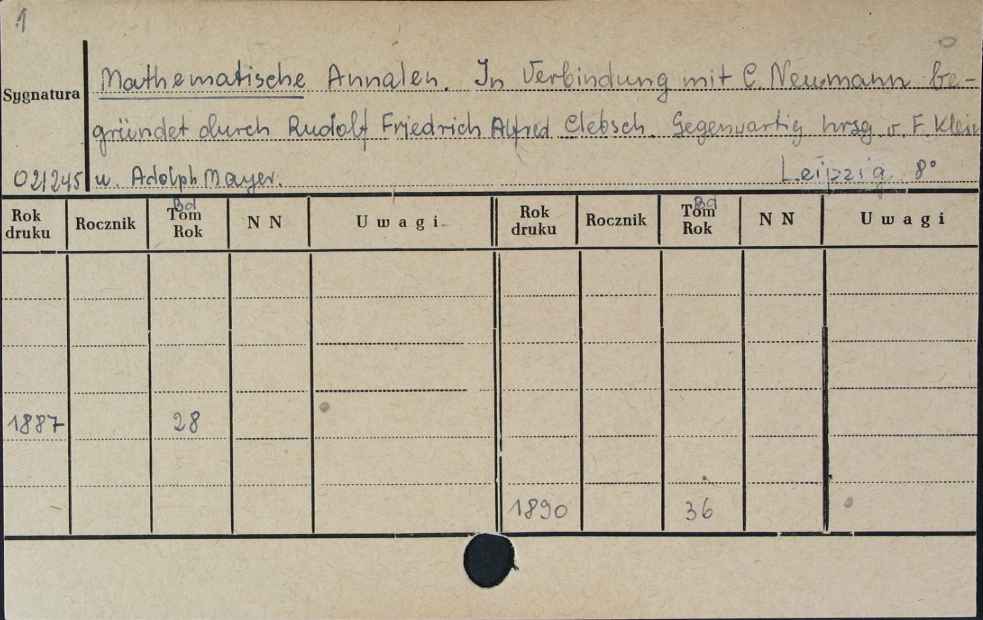 1
Mathematische Annalen. In Verbindung mit C. Neumann be-
Sygnatura
gründet durch Rudolf Friedrich Alfred Clebsch. Gegenwartig hrsg. v. F. Klein
021245 u. Adolph Mayer. Leipzig 8°
Rok druku Rocznik Bd Tom Rok NN Uwagi Rok druku Rocznik Bd Tom Rok NN Uwagi
1887 28
1890 36